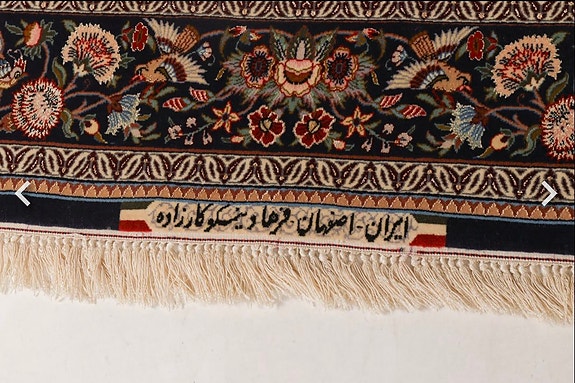 ایران - اصفهان فرهاد نیسکو کارزاده